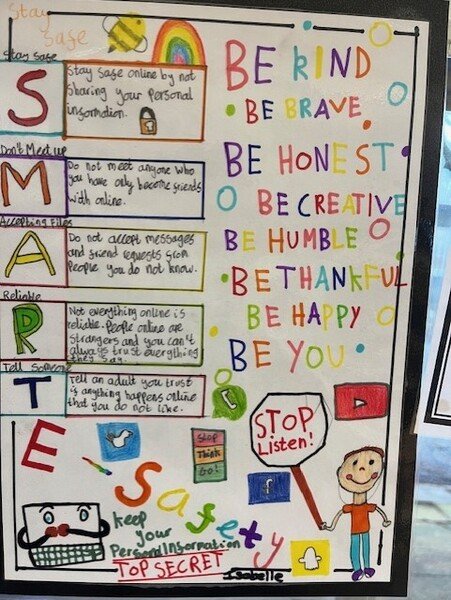 Stay
Safe
Stay Safe
S
Stay Safe online by not
sharing your personal
information.
Don't Meet up
M
Do not meet anyone who
you have only become friends
with online.
Accepting Files
A
Do not accept messages
and friend requests from
People you do not know.
Reliable
R
Not everything online is
reliable. People online are
strangers and you can't
always trust everything
they say.
Tell Someone
T
Tell an adult you trust
if anything happens online
that you do not like.
BE KIND
BE BRAVE
BE HONEST
BE CREATIVE
BE HUMBLE
BE THANKFUL
BE HAPPY
BE YOU
E-Safety
Stop
Think
Go!
STOP
Listen!
f
keep
your
Personal Information
TOP SECRET
Isabelle